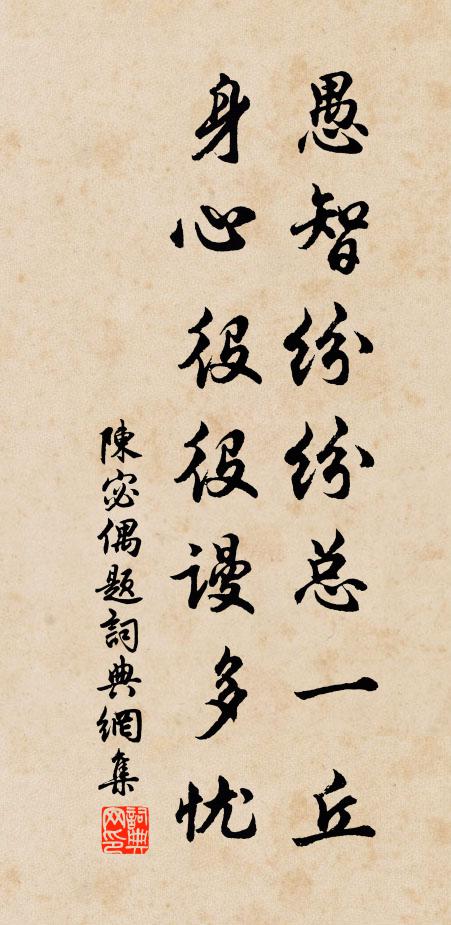 愚智纷纷总一丘
身心役役谩多忧
陳宓偶题詞典網集
詞典网印